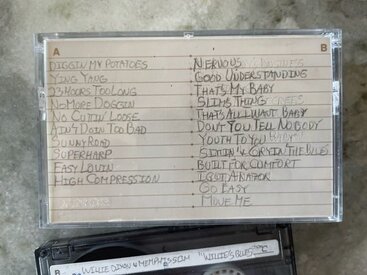 A
B
DIGGIN MY POTATOES
YING YANG
23 HOURS TOO LONG
NO MORE DOGGIN
NO CUTIN' LOOSE
AIN'T DOIN TOO BAD
SUNNY ROAD
SUPERHARP
EASY LOVIN
HIGH COMPRESSION
NERVOUS
GOOD UNDERSTANDING
THAT'S MY BABY
SLIM'S THING
THAT'S ALL I WANT BABY
DON'T YOU TELL NOBODY
YOUTH TO YOU
SITTIN & CRYIN THE BLUES
BUILT FOR COMFORT
I GOT A RAZOR
GO EASY
MOVE ME
B
WILLIE DIXON & MEMPHIS SLIM "WILLIE'S BLUES"